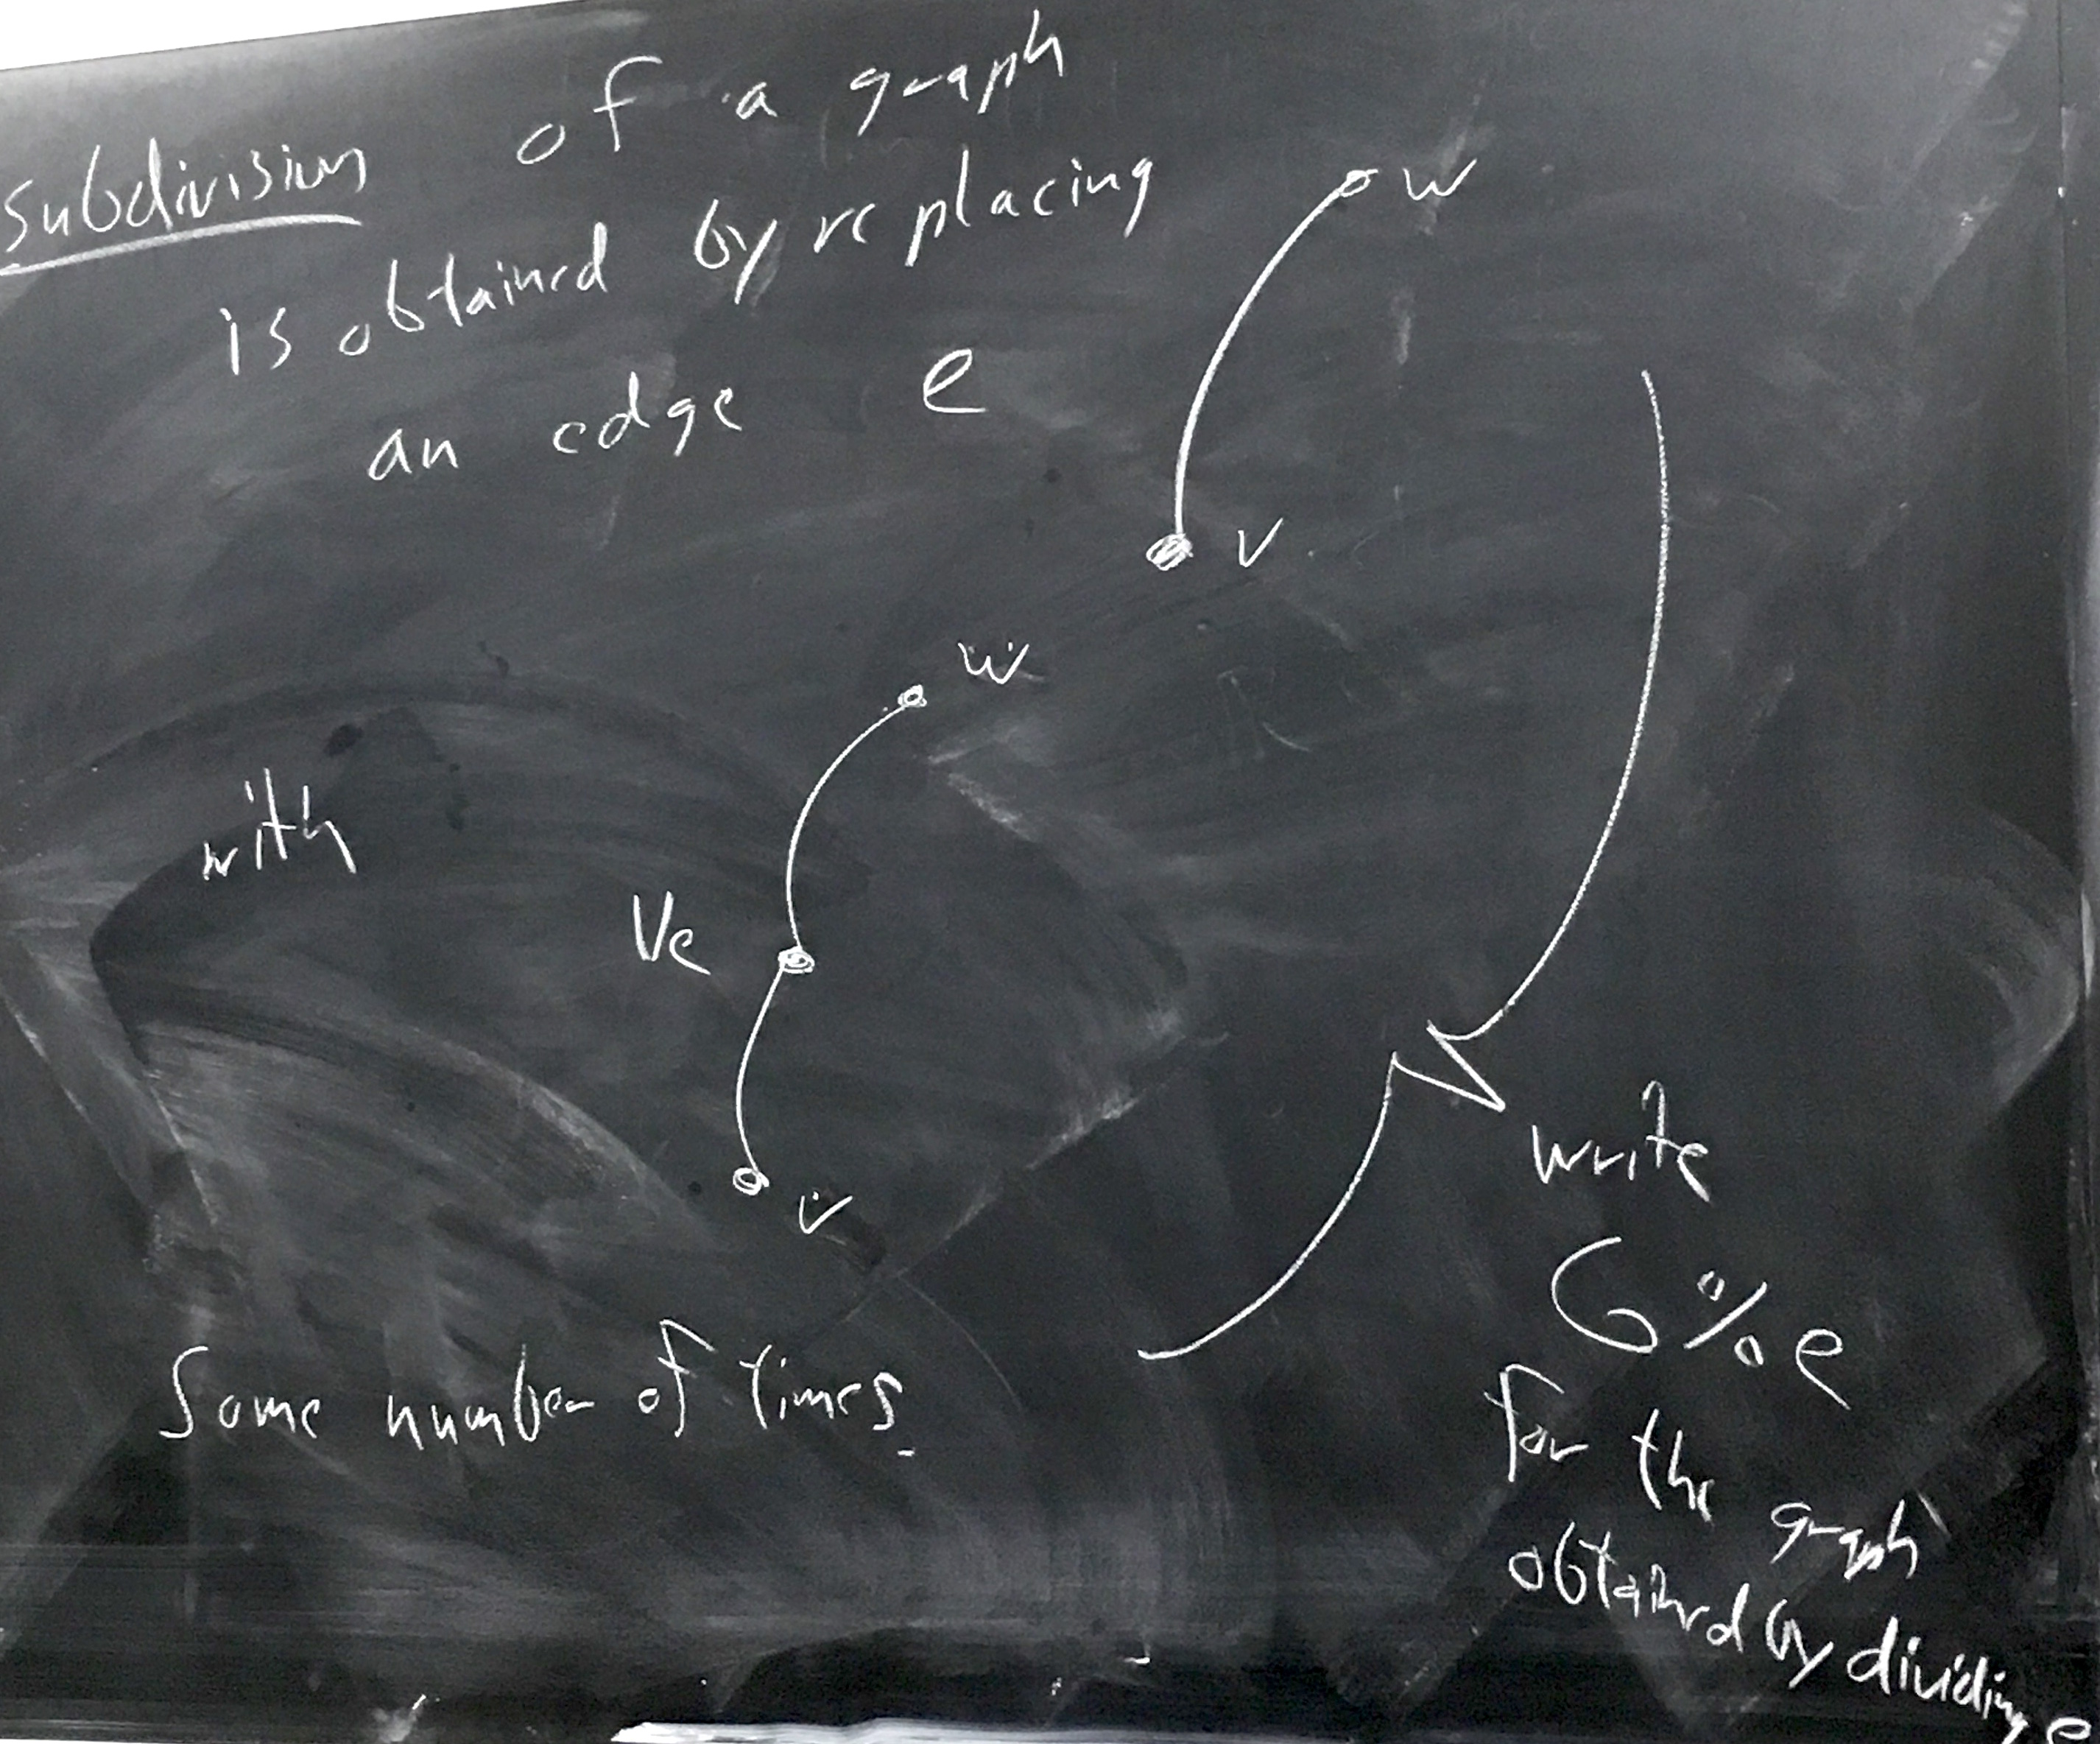 subdivision of a graph
is obtained by replacing
an edge e
w
v
w
with
Ve
v
some number of times.
write
G % e
for the graph
obtained by dividing e